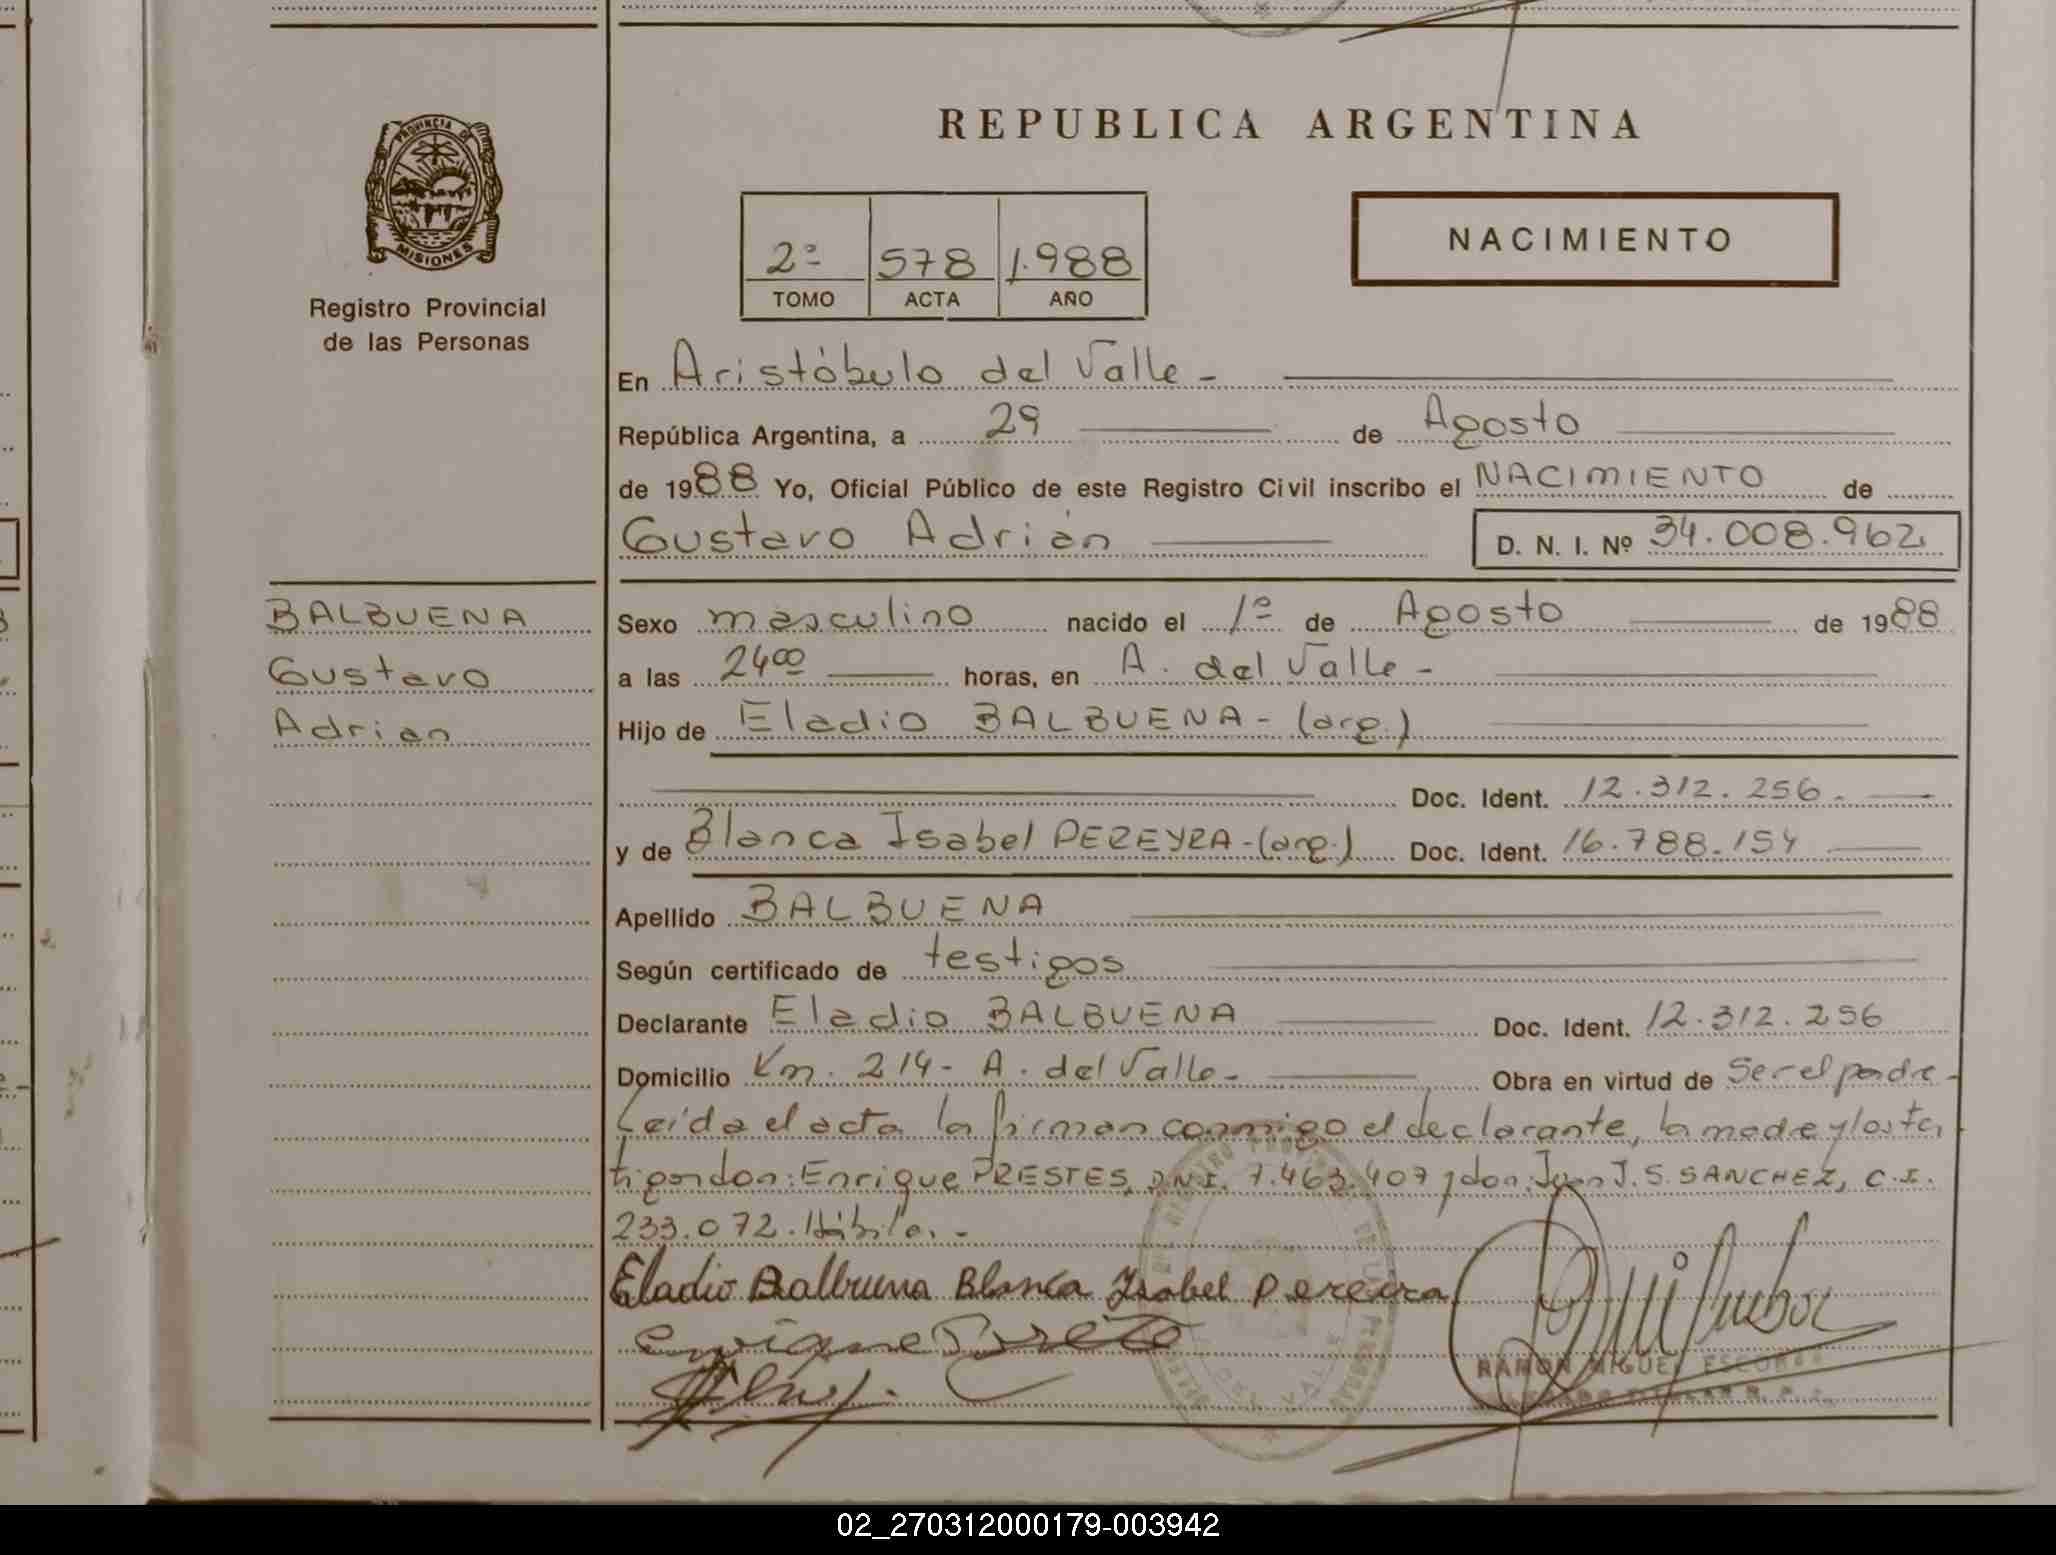 PROVINCIA DE
MISIONES
Registro Provincial
de las Personas
REPUBLICA ARGENTINA
2º 578 1.988
TOMO ACTA AÑO
NACIMIENTO
En Aristóbulo del Valle -
República Argentina, a 29 de Agosto
de 1988 Yo, Oficial Público de este Registro Civil inscribo el NACIMIENTO de
Gustavo Adrián D. N. I. Nº 34.008.962
BALBUENA
Gustavo
Adrian
Sexo masculino nacido el 1º de Agosto de 1988
a las 24oo horas, en A. del Valle -
Hijo de Eladio BALBUENA - (arg.)
Doc. Ident. 12.312.256.
y de Blanca Isabel PEREYRA - (arg.) Doc. Ident. 16.788.154
Apellido BALBUENA
Según certificado de testigos
Declarante Eladio BALBUENA Doc. Ident. 12.312.256
Domicilio Km. 214 - A. del Valle - Obra en virtud de Ser el padre -
Leída el acta la firman conmigo el declarante, la madre y los tes
tigos don: Enrique PRESTES, D.N.I. 7.463.407 y don: Juan J. S. SANCHEZ, C.I.
233.072. Hábiles. -
Eladio Balbuena Blanca Isabel Pereira
RAMON MIGUEL ESCOBAR
02_270312000179-003942